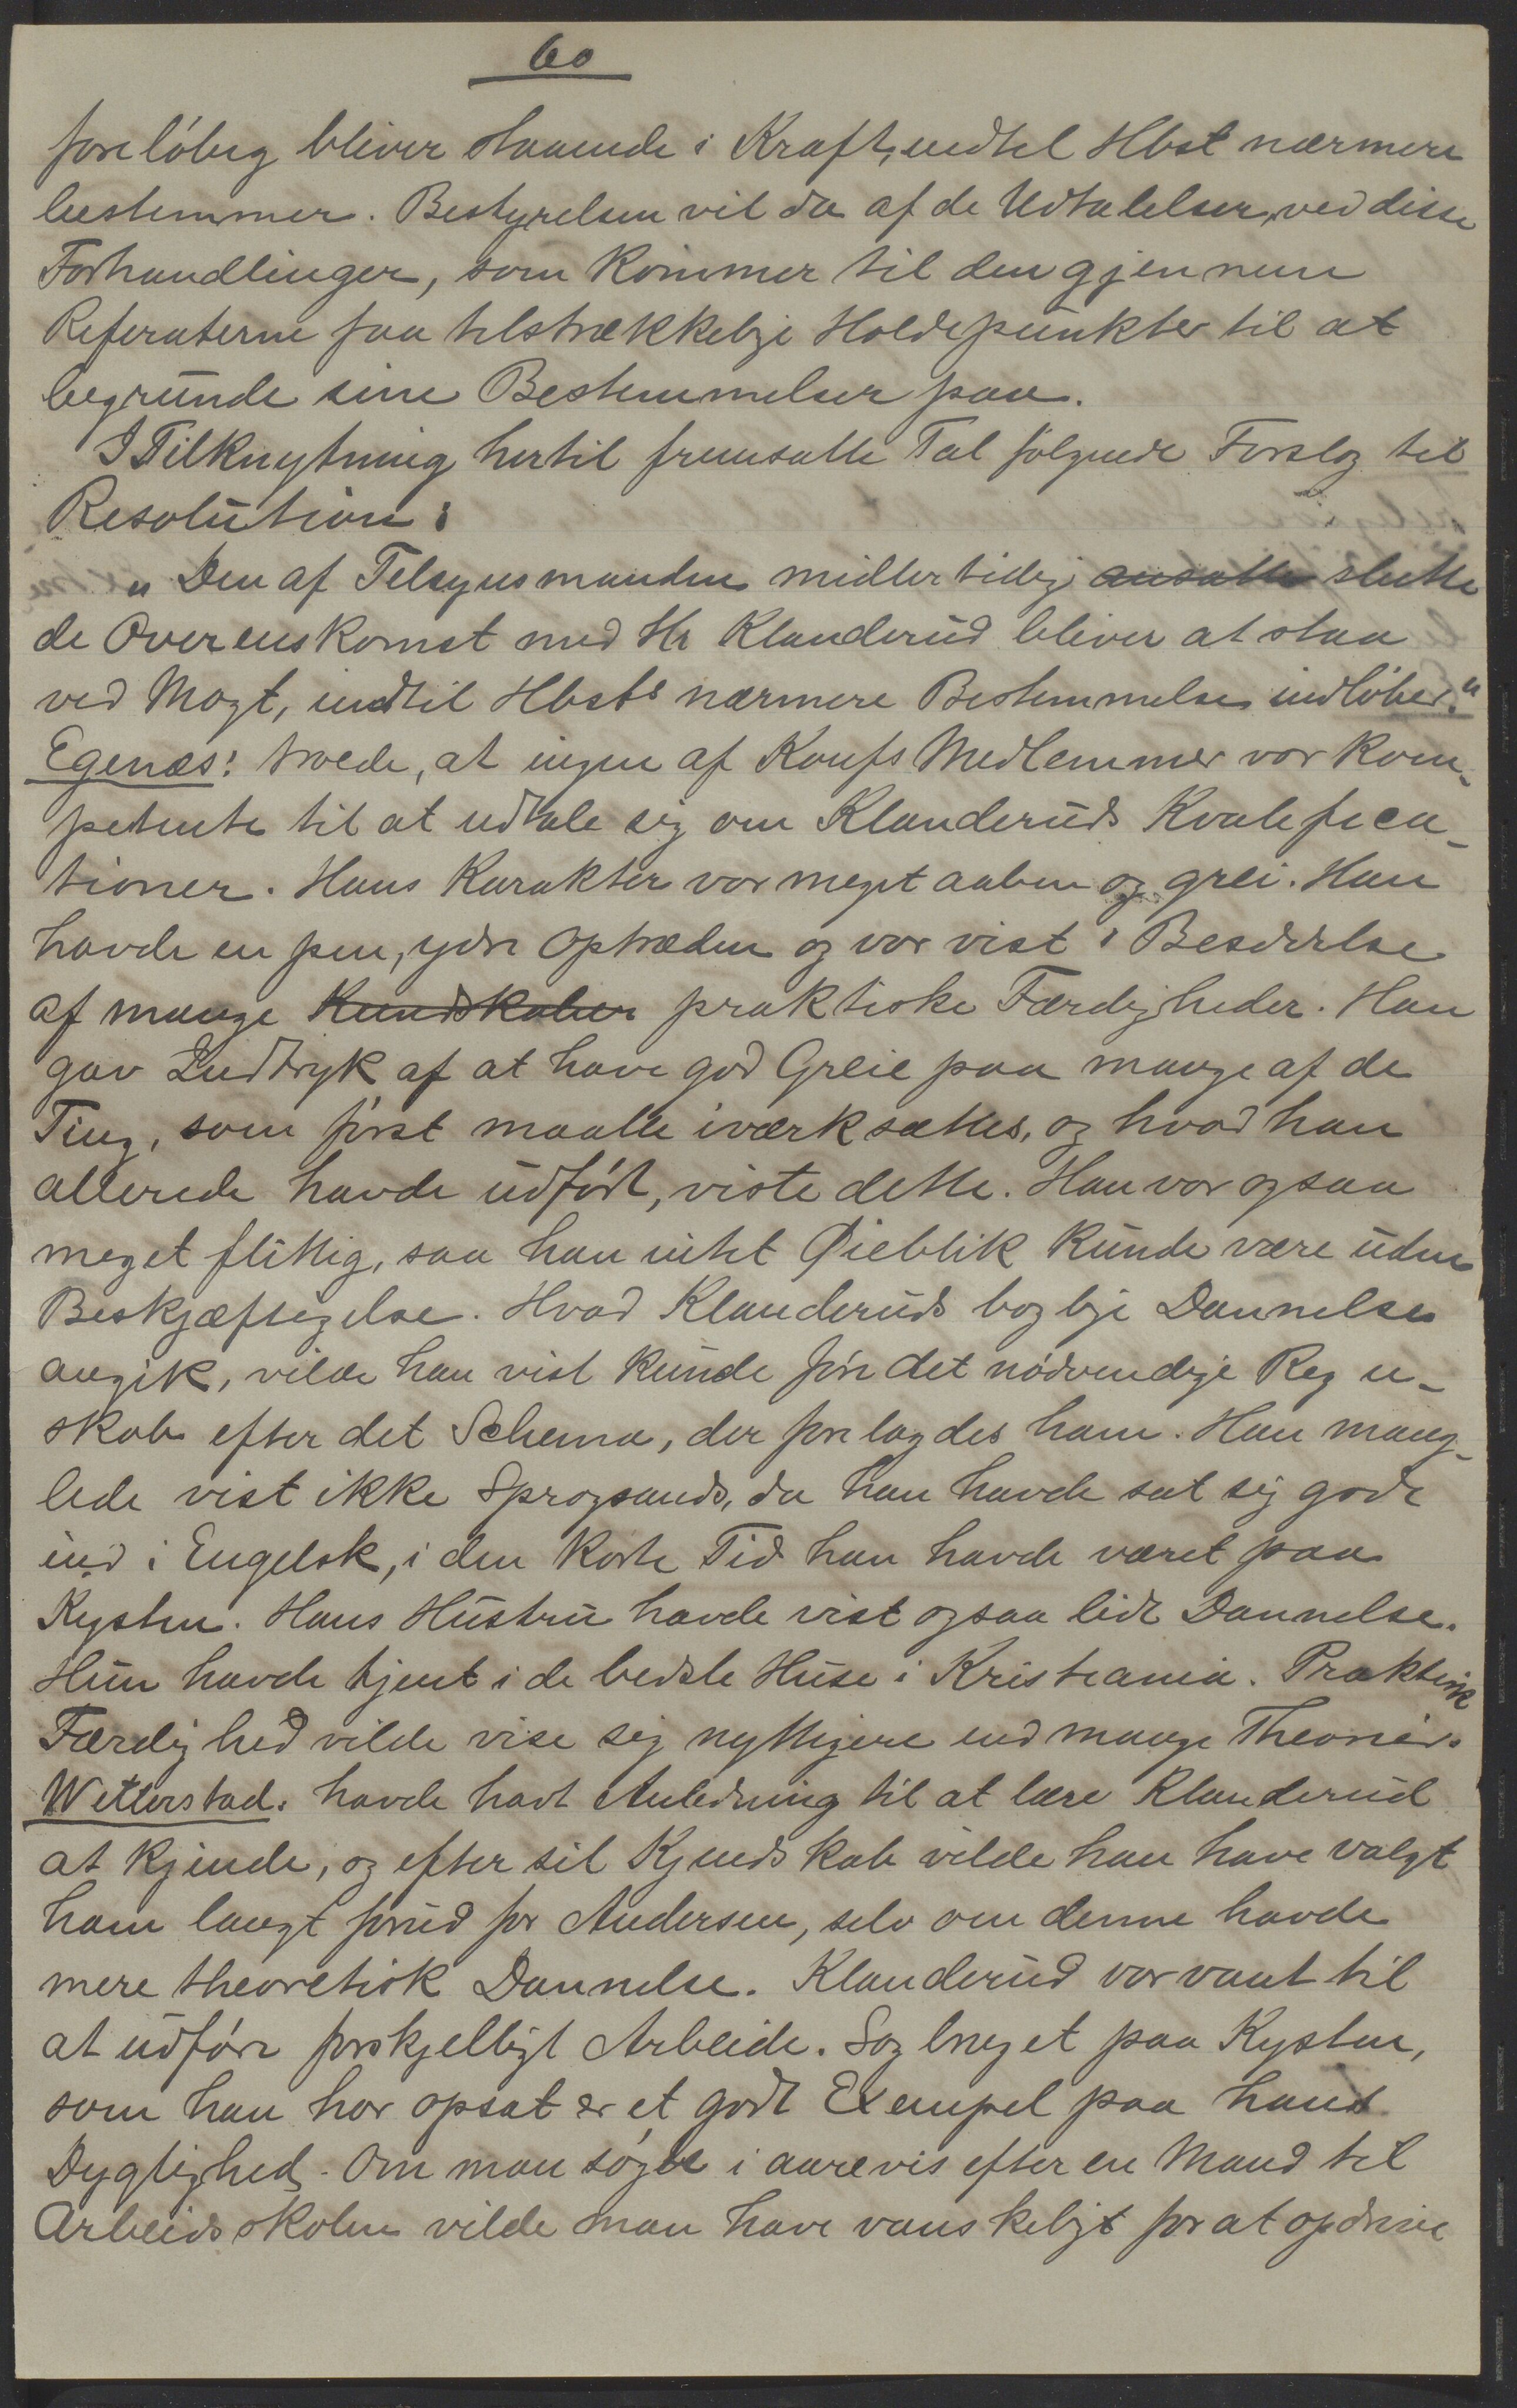 60
foreløbig bliver staaende i Kraft, indtil Hbst nærmere
bestemmer. Bestyrelsen vil da af de Udtalelser, ved disse
Forhandlinger, som kommer til den gjennem
Referaterne faa tilstrækkelige Holdepunkter til at
begrunde sine Bestemmelser paa.
I Tilknytning hertil fremsatte Tal følgende Forslag til
Resolution:
„Den af Tilsynsmanden midlertidig ansatte slutte
de Overenskomst med Hr Klanderud bliver at staa
ved Magt, indtil Hbsts nærmere Bestemmelse indløber."
Egenæs: troede, at ingen af Konfs Medlemmer var kom-
petente til at udtale sig om Klanderuds Kvalifica-
tioner. Hans Karakter var meget aaben og grei. Han
havde en pen, ydre Optræden og var vist i Besiddelse
af mange Kundskaber praktiske Færdigheder. Han
gav Indtryk af at have god Greie paa mange af de
Ting, som først maatte iværksættes, og hvad han
allerede havde udført, viste dette. Han var ogsaa
meget flittig, saa han intet Øieblik kunde være uden
Beskjæftigelse. Hvad Klanderuds boglige Dannelse
angik, vilde han vist kunde føre det nødvendige Regn-
skab efter det Schema, der forelagdes ham. Han mang-
lede vist ikke Sprogsands, da han havde sat sig godt
ind i Engelsk, i den korte Tid han havde været paa
Kysten. Hans Hustru havde vist ogsaa lidt Dannelse.
Hun havde tjent i de bedste Huse i Kristiania. Praktisk
Færdighed vilde vise sig nyttigere end mange Theorier.
Wetterstad. havde havt Anledning til at lære Klanderud
at kjende, og efter sit Kjendskab vilde han have valgt
ham langt forud for Andersen, selv om denne havde
mere theoretisk Dannelse. Klanderud var vant til
at udføre forskjelligt Arbeide. Sagbruget paa Kysten,
som han har opsat er et godt Exempel paa hans
Dygtighed. Om man søgte i aarevis efter en Mand til
Arbeidsskolen vilde man have vanskeligt for at opdrive